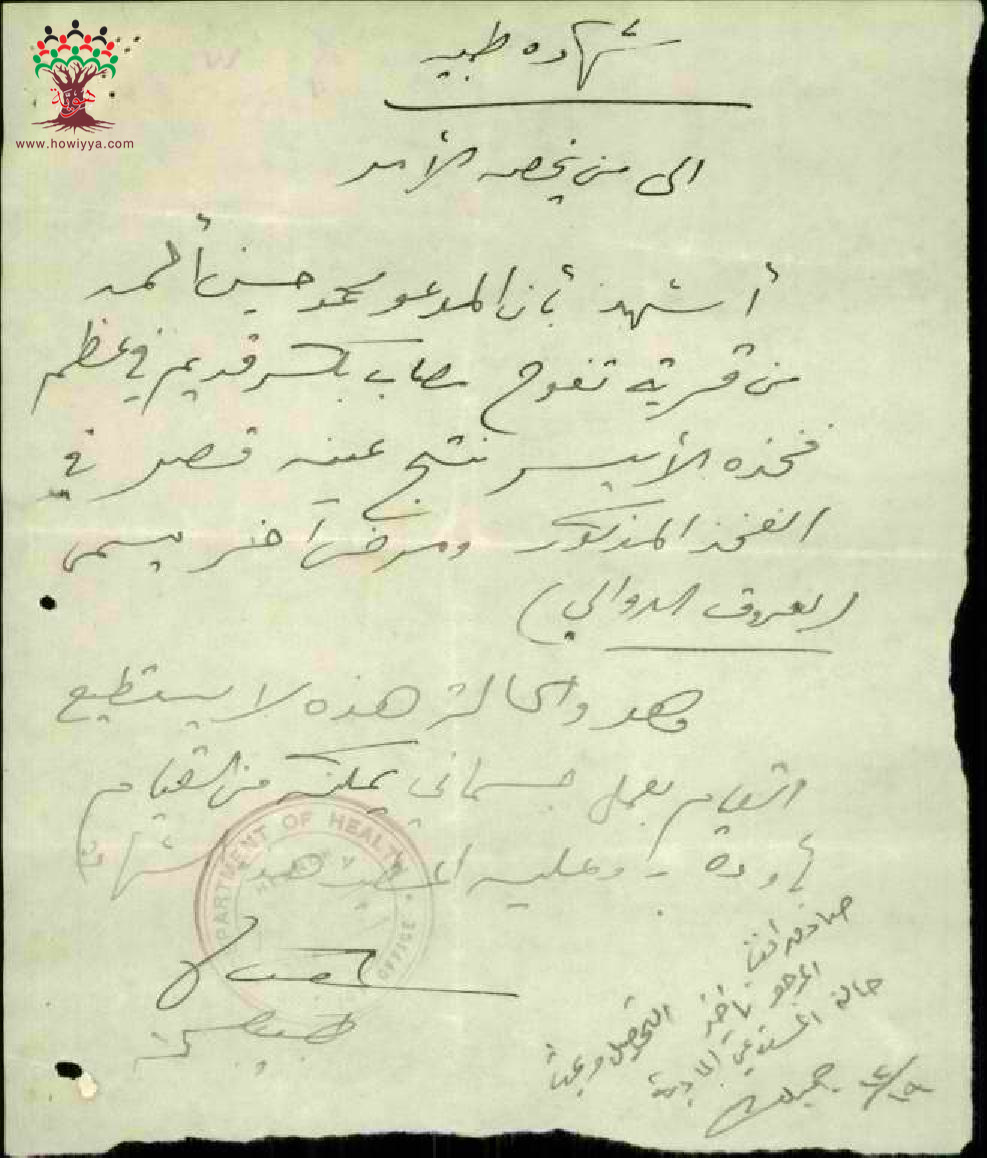 هوية
www.howiyya.com
شهاده طبيه
الى من يخصه الأمر
أشهد بأن المدعو محمد حسين أحمد
من قرية تفوح مصاب بكسر قديم في عظم
فخذه الأيسر نتج عنه قصر في
الفخذ المذكور ومرض آخر يسمى
(بعروق الدوالي)
وهو والحالة هذه لا يستطيع
القيام بعمل جسماني يمكنه من القيام
بأوده - وعليه اعطيت هذه الشهادة
DEPARTMENT OF HEALTH
OFFICE
المرجو
حالة المستدعي المادية